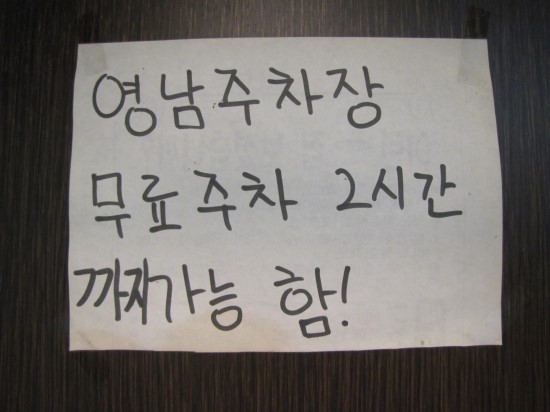 영남주차장
무료주차 2시간
까지가능 함!